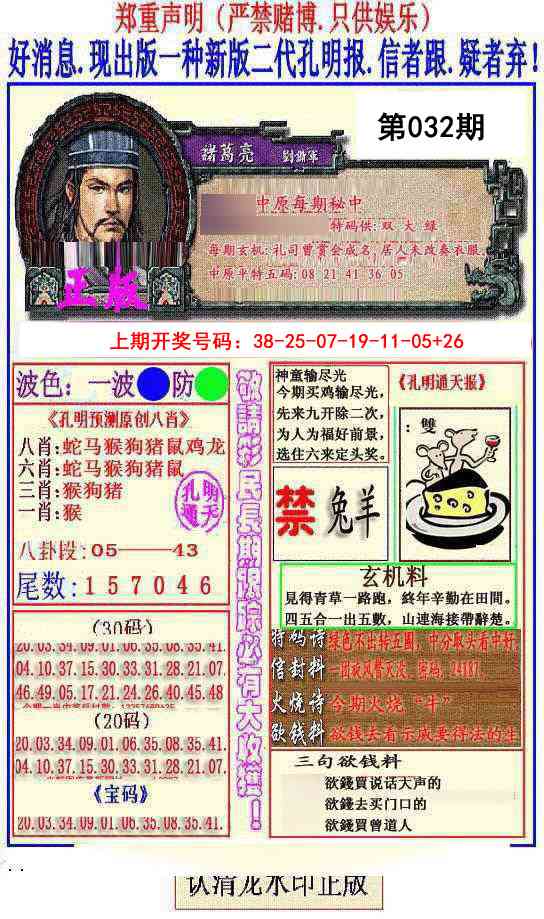 郑重声明（严禁赌博.只供娱乐）
好消息.现出版一种新版二代孔明报.信者跟.疑者弃!
第032期
諸葛亮
中原每期秘中
特码供:双 大 绿
每期玄机:礼司曾賓会成名,居人未改奏衣服
中原平特五码:08 21 41 36 05
正版
上期开奖号码：38-25-07-19-11-05+26
波色：一波 防
《孔明预测原创八肖》
八肖:蛇马猴狗猪鼠鸡龙
六肖:蛇马猴狗猪鼠
三肖:猴狗猪
一肖:猴
孔明
通天
八卦段:05——43
尾数:157046
敬請彩民長期跟踪必有大收獲！
神童输尽光
今期买鸡输尽光,
先来九开除二次,
为人为福好前景,
选住六来定头奖。
禁 兔羊
《孔明通天报》
：雙
玄机料
見得青草一路跑，終年辛勤在田間。
四五合一出五數，山連海接帶辭楚。
特码诗 绿色不出转五圈，中分取头看中特
信封料
火烧诗 今期火烧“牛”
欲钱料 欲钱去看示威要得法的生
三句欲钱料
欲錢買说话天声的
欲錢去买门口的
欲錢買曾道人
(30码)
20.03.34.09.01.06.35.08.35.41.
04.10.37.15.30.33.31.28.21.07.
46.49.05.17.21.24.26.40.45.48
(20码)
20.03.34.09.01.06.35.08.35.41.
04.10.37.15.30.33.31.28.21.07.
《宝码》
20.03.34.09.01.06.35.08.35.41.
认清龙水印正版